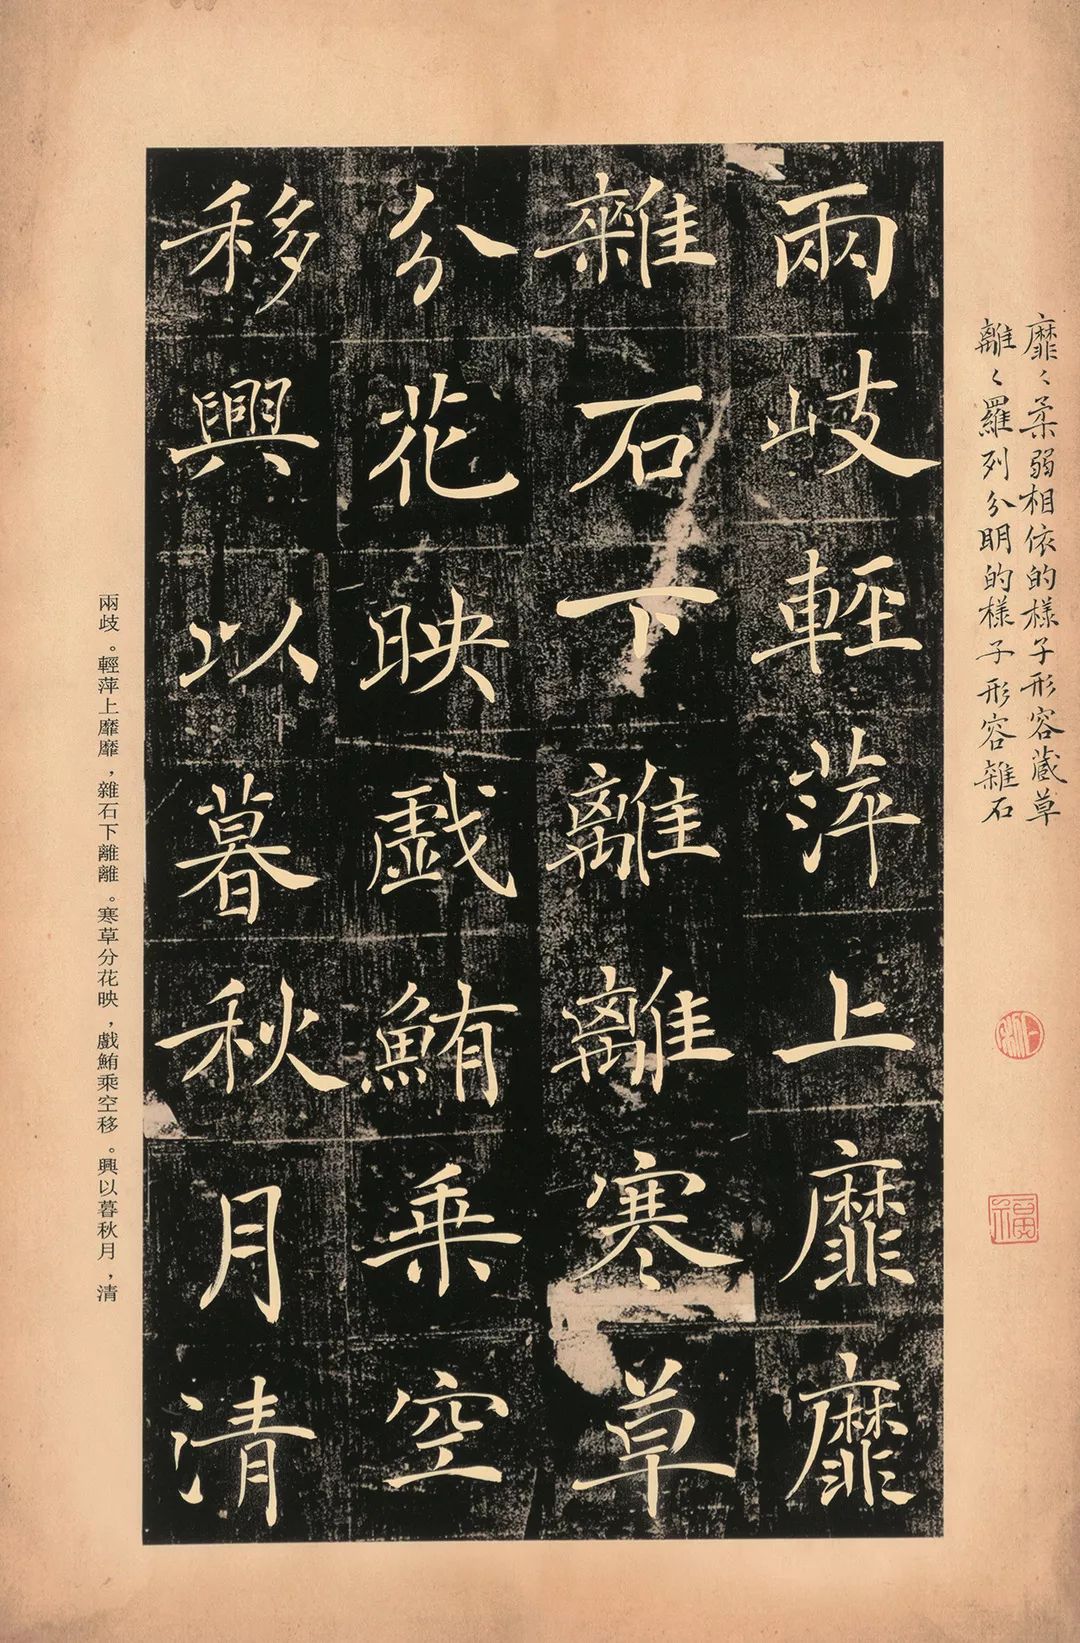 靡〻柔弱相依的樣子形容蔵草
離〻羅列分明的樣子形容雜石
兩歧輕萍上靡靡
雜石下離離寒草
分花映戲鮪乘空
移興以暮秋月清
兩歧。輕萍上靡靡，雜石下離離。寒草分花映，戲鮪乘空移。興以暮秋月，清
福